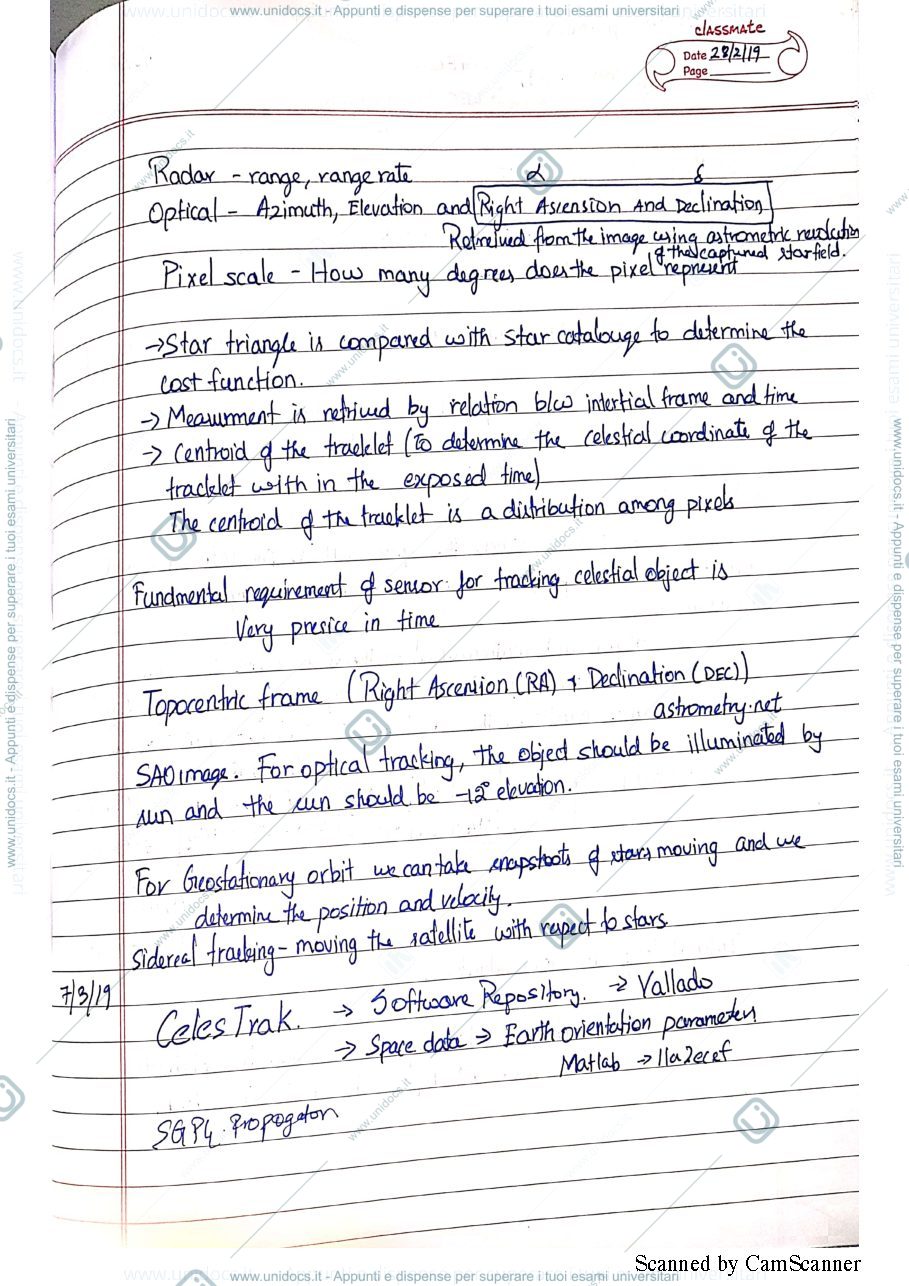 www.unidocs.it - Appunti e dispense per superare i tuoi esami universitari
classmate
Date 28/2/19
Page
Radar - range, range rate α δ
Optical - Azimuth, Elevation and Right Ascension And Declination
Retreived from the image using astrometric revolution
of the captured starfield.
Pixel scale - How many degrees does the pixel represent
→ Star triangle is compared with star catalouge to determine the
cost function.
→ Measurment is retrived by relation b/w intertial frame and time
→ Centroid of the tracklet (To determine the celestial coordinate of the
tracklet with in the exposed time)
The centroid of the tracklet is a distribution among pixels
Fundmental requirement of sensor for tracking celestial object is
Very presice in time
Topocentric frame (Right Ascension (RA) + Declination (DEC))
astrometry.net
SAO image. For optical tracking, the object should be illuminated by
sun and the sun should be -12° elevation.
For Geostationary orbit we can take snapshots of stars moving and we
determine the position and velocity.
Sidereal tracking - moving the satellite with respect to stars
7/3/19
CelesTrak. → Software Repository. → Vallado
→ Space data → Earth orientation parameters
Matlab → lla2ecef
SGP4 Propogaton
Scanned by CamScanner
www.unidocs.it - Appunti e dispense per superare i tuoi esami universitari